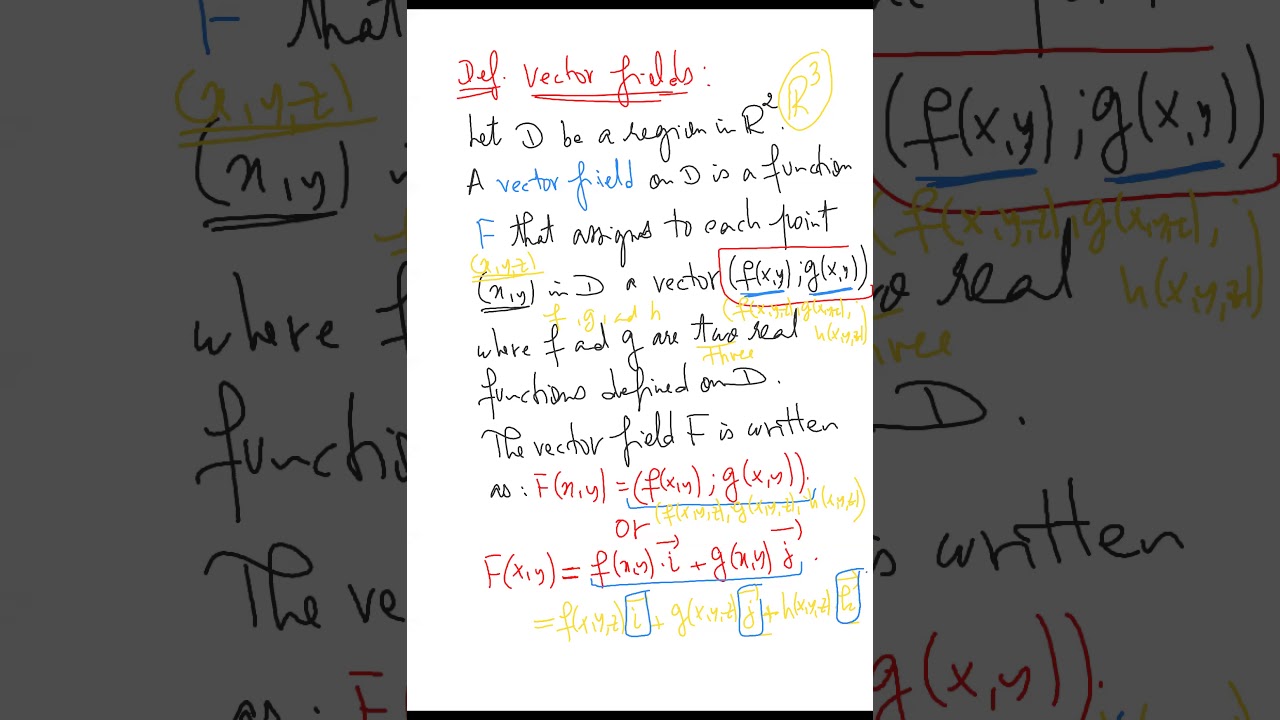 Def. Vector fields:
Let D be a region in R². R³
A vector field on D is a function
F that assigns to each point
(x,y,z)
(x,y) in D a vector (f(x,y);g(x,y))
f, g, and h (f(x,y,z), g(x,y,z), h(x,y,z))
where f ad g are two real
three
functions defined on D.
The vector field F is written
as: F(x,y) = (f(x,y);g(x,y)).
(f(x,y,z), g(x,y,z), h(x,y,z))
or
F(x,y) = f(x,y).i + g(x,y) j.
= f(x,y,z) i + g(x,y,z) j + h(x,y,z) k